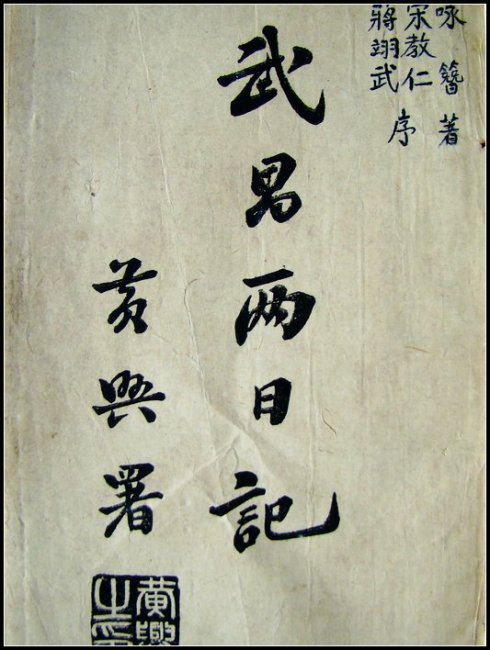 咏簪著
宋教仁
蔣翊武
序
武昌两日記
黄興署
黄興之印